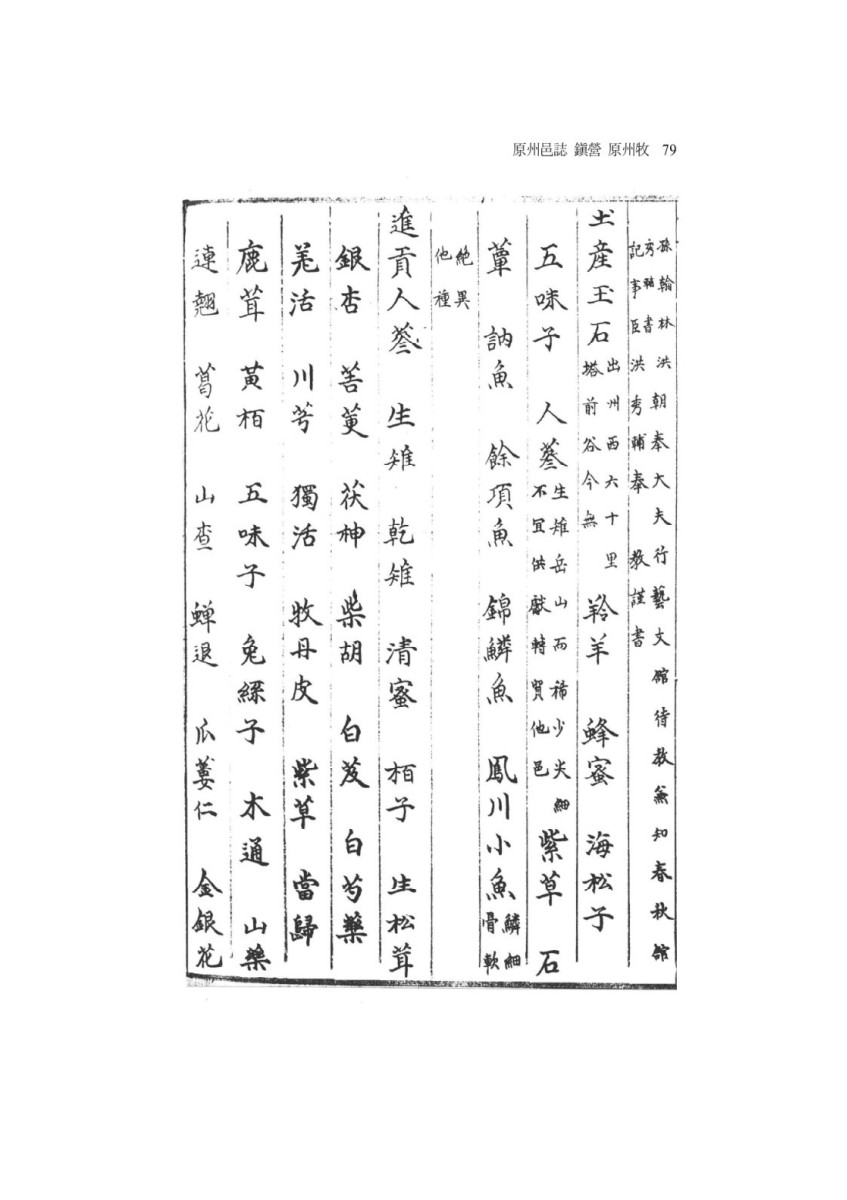 原州邑誌 鎭營 原州牧 79
孫翰林洪朝奉大夫行藝文館待教兼知春秋館
秀輔書
記事臣洪秀輔奉 教謹書
土産玉石 出州西六十里塔前谷今無 羚羊 蜂蜜 海松子
五味子 人蔘 生雉岳山而稀少尖細不宜供獻轉貿他邑 紫草 石
蕈 訥魚 餘項魚 錦鱗魚 鳳川小魚 鱗細骨軟
絶異他種
進貢人蔘 生雉 乾雉 清蜜 栢子 生松茸
銀杏 苦茰 茯神 柴胡 白芨 白芍藥
羌活 川芎 獨活 牧丹皮 紫草 當歸
鹿茸 黃栢 五味子 兔絲子 木通 山藥
連翹 葛花 山查 蟬退 瓜蔞仁 金銀花